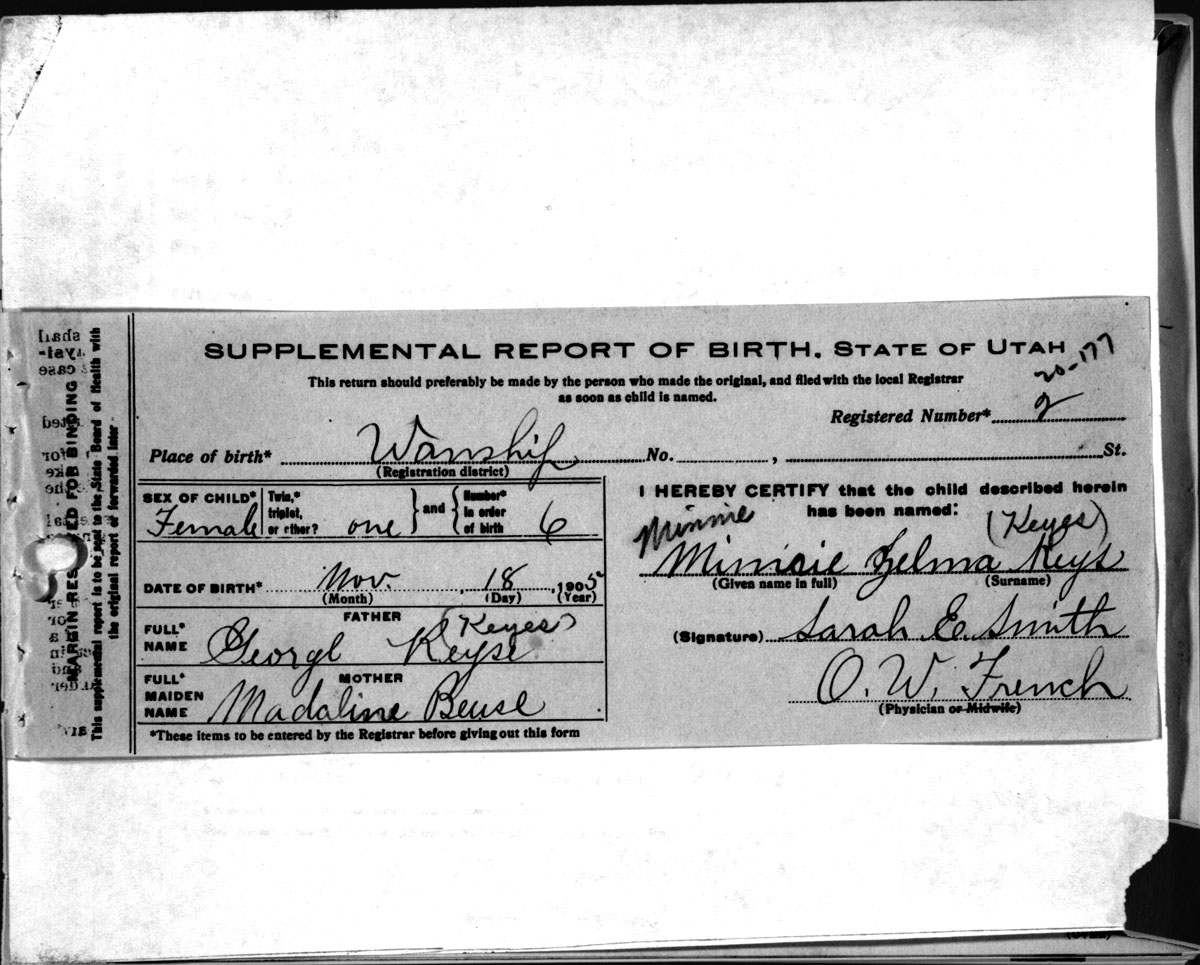 SUPPLEMENTAL REPORT OF BIRTH. STATE OF UTAH
20-177
This return should preferably be made by the person who made the original, and filed with the local Registrar
as soon as child is named.
Registered Number* 2
Place of birth* Wanship No. , St.
(Registration district)
SEX OF CHILD* Female
Twin,* triplet, or other? one } and { Number* in order of birth 6
DATE OF BIRTH* Nov. , 18 , 1905
(Month) (Day) (Year)
FATHER
(Keyes)
FULL* NAME George Keyse
MOTHER
FULL* MAIDEN NAME Madaline Beuse
*These items to be entered by the Registrar before giving out this form
I HEREBY CERTIFY that the child described herein
has been named:
Minnie (Keyes)
Minnie Zelma Keys
(Given name in full) (Surname)
(Signature) Sarah E. Smith
O. W. French
(Physician or Midwife)
MARGIN RESERVED FOR BINDING
This supplemental report is to be sent to the State Board of Health with
the original report or forwarded later